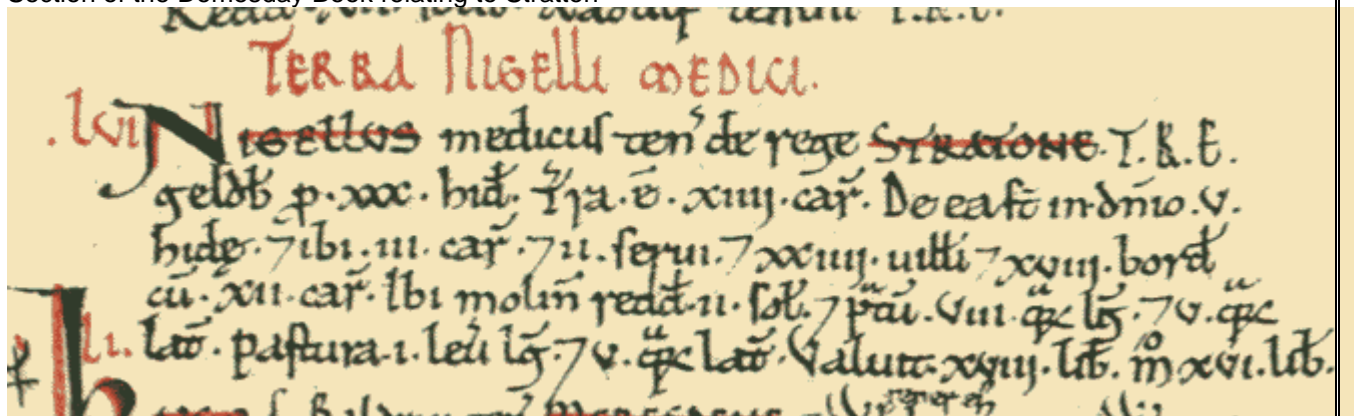 Section of the Domesday Book relating to Stratton
TERRA NIGELLI MEDICI.
.lvi NIGELLUS medicus ten' de rege STRATONE. T.R.E.
geldb p. xxx. hid. Tra. ē. xiiij. car̄. De ea st̄ in dn̄io. v.
hidę. ⁊ ibi. iii. car̄. ⁊ ii. serui. ⁊ xxiiij. uilli ⁊ xviij. bord
cū. xii. car̄. Ibi molin̄ redd. ii. sol. ⁊ p̄ti. viii. q̄rz lḡ. ⁊ v. q̄rz
lat̄. pastura. i. leu lḡ. ⁊ v. q̄rz lat̄. Valuit. xviij. lib. m̊ xvi. lib.
li.